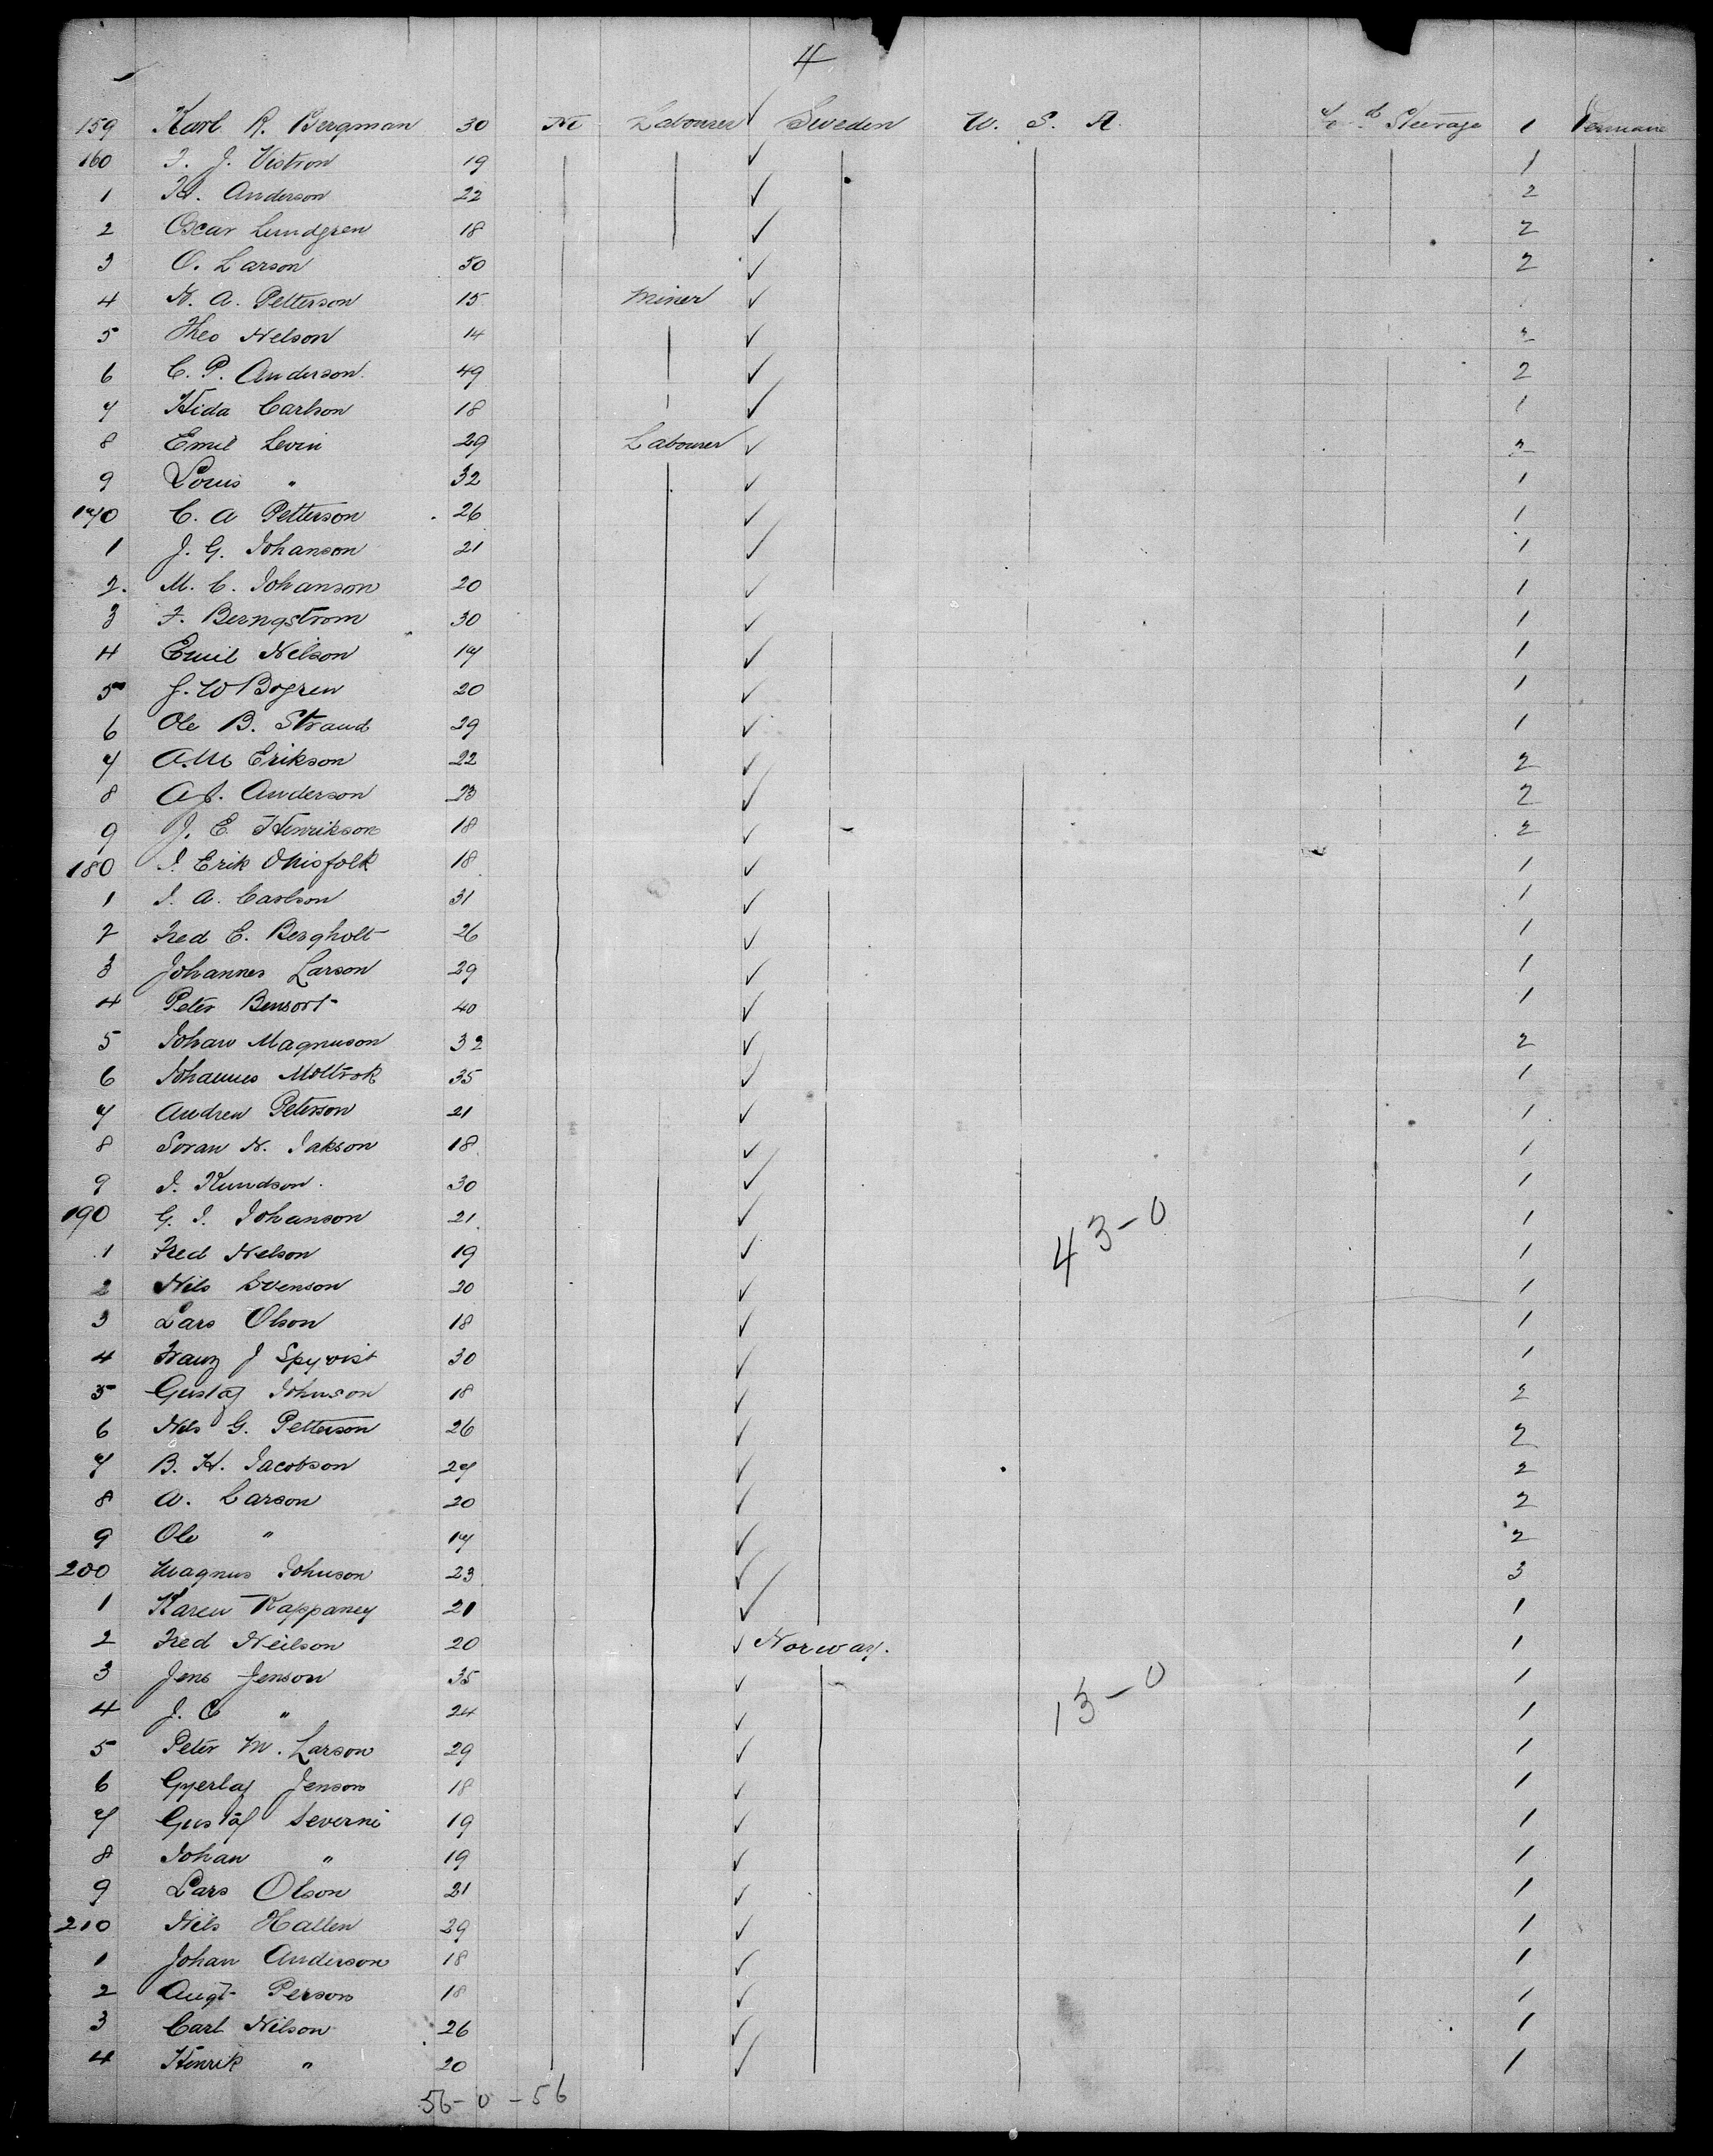 4
159 Karl R. Bergman 30 M Labourer ✓ Sweden U. S. A. Steerage 1
160 J. J. Vistron 19 ✓ 1
1 H. Anderson 22 ✓ 2
2 Oscar Lundgren 18 ✓ 2
3 O. Larson 50 ✓ 2
4 N. A. Petterson 15 Miner ✓
5 Theo Nelson 14 ✓ 2
6 C. P. Anderson 49 ✓ 2
7 Hida Carlson 18 ✓ 1
8 Emil Levin 29 Labourer ✓ 2
9 Louis " 32 ✓ 1
170 C. A Petterson 26 ✓ 1
1 J. G. Johanson 21 ✓ 1
2. M. C. Johanson 20 ✓ 1
3 F. Berngstrom 30 ✓ 1
4 Emil Nelson 17 ✓ 1
5 J. W Bogren 20 ✓ 1
6 Ole B. Strand 29 ✓ 1
7 A. M Erikson 22 ✓ 2
8 A J. Anderson 23 ✓ 2
9 J. E. Henrikson 18 ✓ 2
180 J. Erik 18 ✓ 1
1 J. A. Carlson 31 ✓ 1
2 Fred E. Bergholt 26 ✓ 1
3 Johannes Larson 29 ✓ 1
4 Peter 40 ✓ 1
5 Johan Magnuson 32 ✓ 2
6 Johannes 35 ✓ 1
7 Andrew Peterson 21 ✓ 1
8 Soran N. Jakson 18 ✓ 1
9 J. Knudson. 30 ✓ 1
190 G. J. Johanson 21 ✓ 43-0 1
1 Fred Nelson 19 ✓ 1
2 Nils Svenson 20 ✓ 1
3 Lars Olson 18 ✓ 1
4 Franz J 30 ✓ 1
5 Gustaf Johnson 18 ✓ 2
6 Nils G. Petterson 26 ✓ 2
7 B. H. Jacobson 27 ✓ 2
8 A. Larson 20 ✓ 2
9 Ole " 17 ✓ 2
200 Magnus Johnson 23 ✓ 3
1 Karen Kappaney 21 ✓ 1
2 Fred Neilson 20 ✓ Norway. 1
3 Jens Jenson 35 ✓ 1
4 J. C " 24 ✓ 13-0 1
5 Peter M. Larson 29 ✓ 1
6 Jenson 18 ✓ 1
7 Gustaf Severni 19 ✓ 1
8 Johan " 19 ✓ 1
9 Lars Olson 21 ✓ 1
210 Nils Hallen 29 ✓ 1
1 Johan Anderson 18 ✓ 1
2 Augt Person 18 ✓ 1
3 Carl Nilson 26 ✓ 1
4 Henrik " 20 ✓ 1
56-0-56